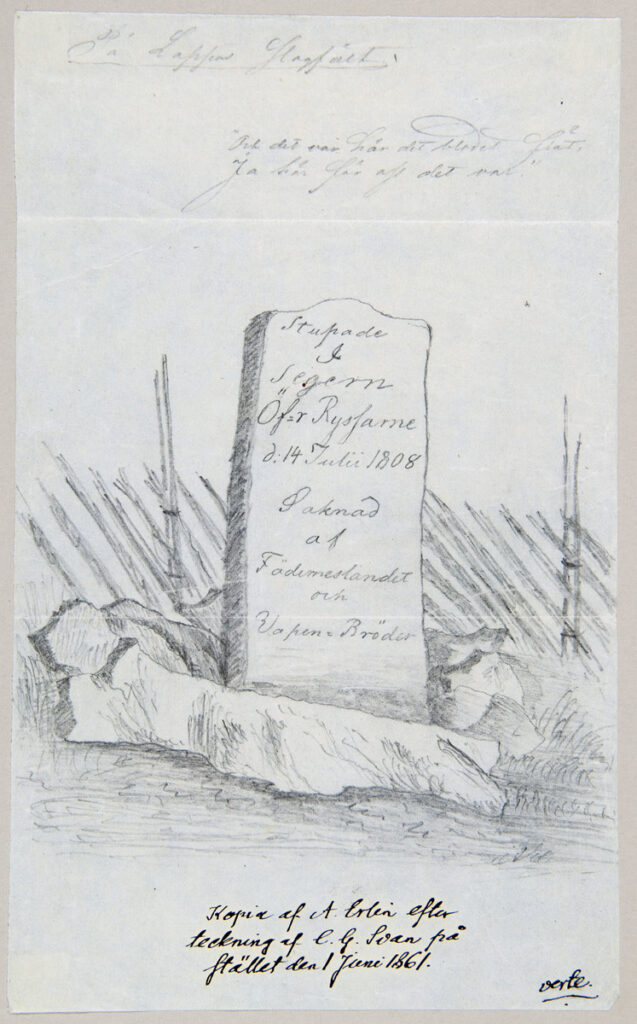 På Lappos Slagfält.
"Och det var här det blodet flöt,
Ja här för oss det var."
Stupade
I
Segern
Öf=r Ryssarne
d: 14 Julii 1808
Saknad
af
Fäderneslandet
och
Vapen=Bröder
Kopia af A. Erlin efter
teckning af C. G. Svan på
stället den 1 Juni 1861.
verte.